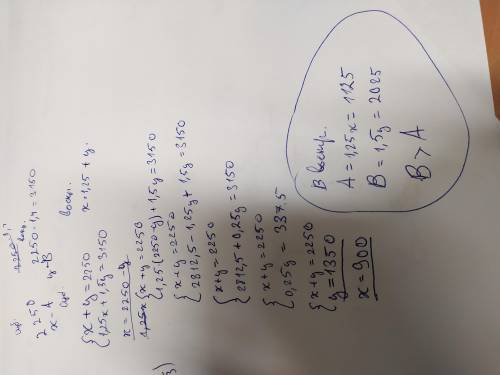 2250 2250·1,4=3150
x-A y-B
{x+y=2250
1,25x+1,5y=3150
x·1,25+y.
x=2250-y
{x+y=2250
1,25(2250-y)+1,5y=3150
{x+y=2250
2812,5-1,25y+1,5y=3150
{x+y=2250
2812,5+0,25y=3150
{x+y=2250
0,25y=337.5
{x+y=2250
y=1350
x=900
В воскр.
A=1,25x=1125
B=1,5y=2025
B>A